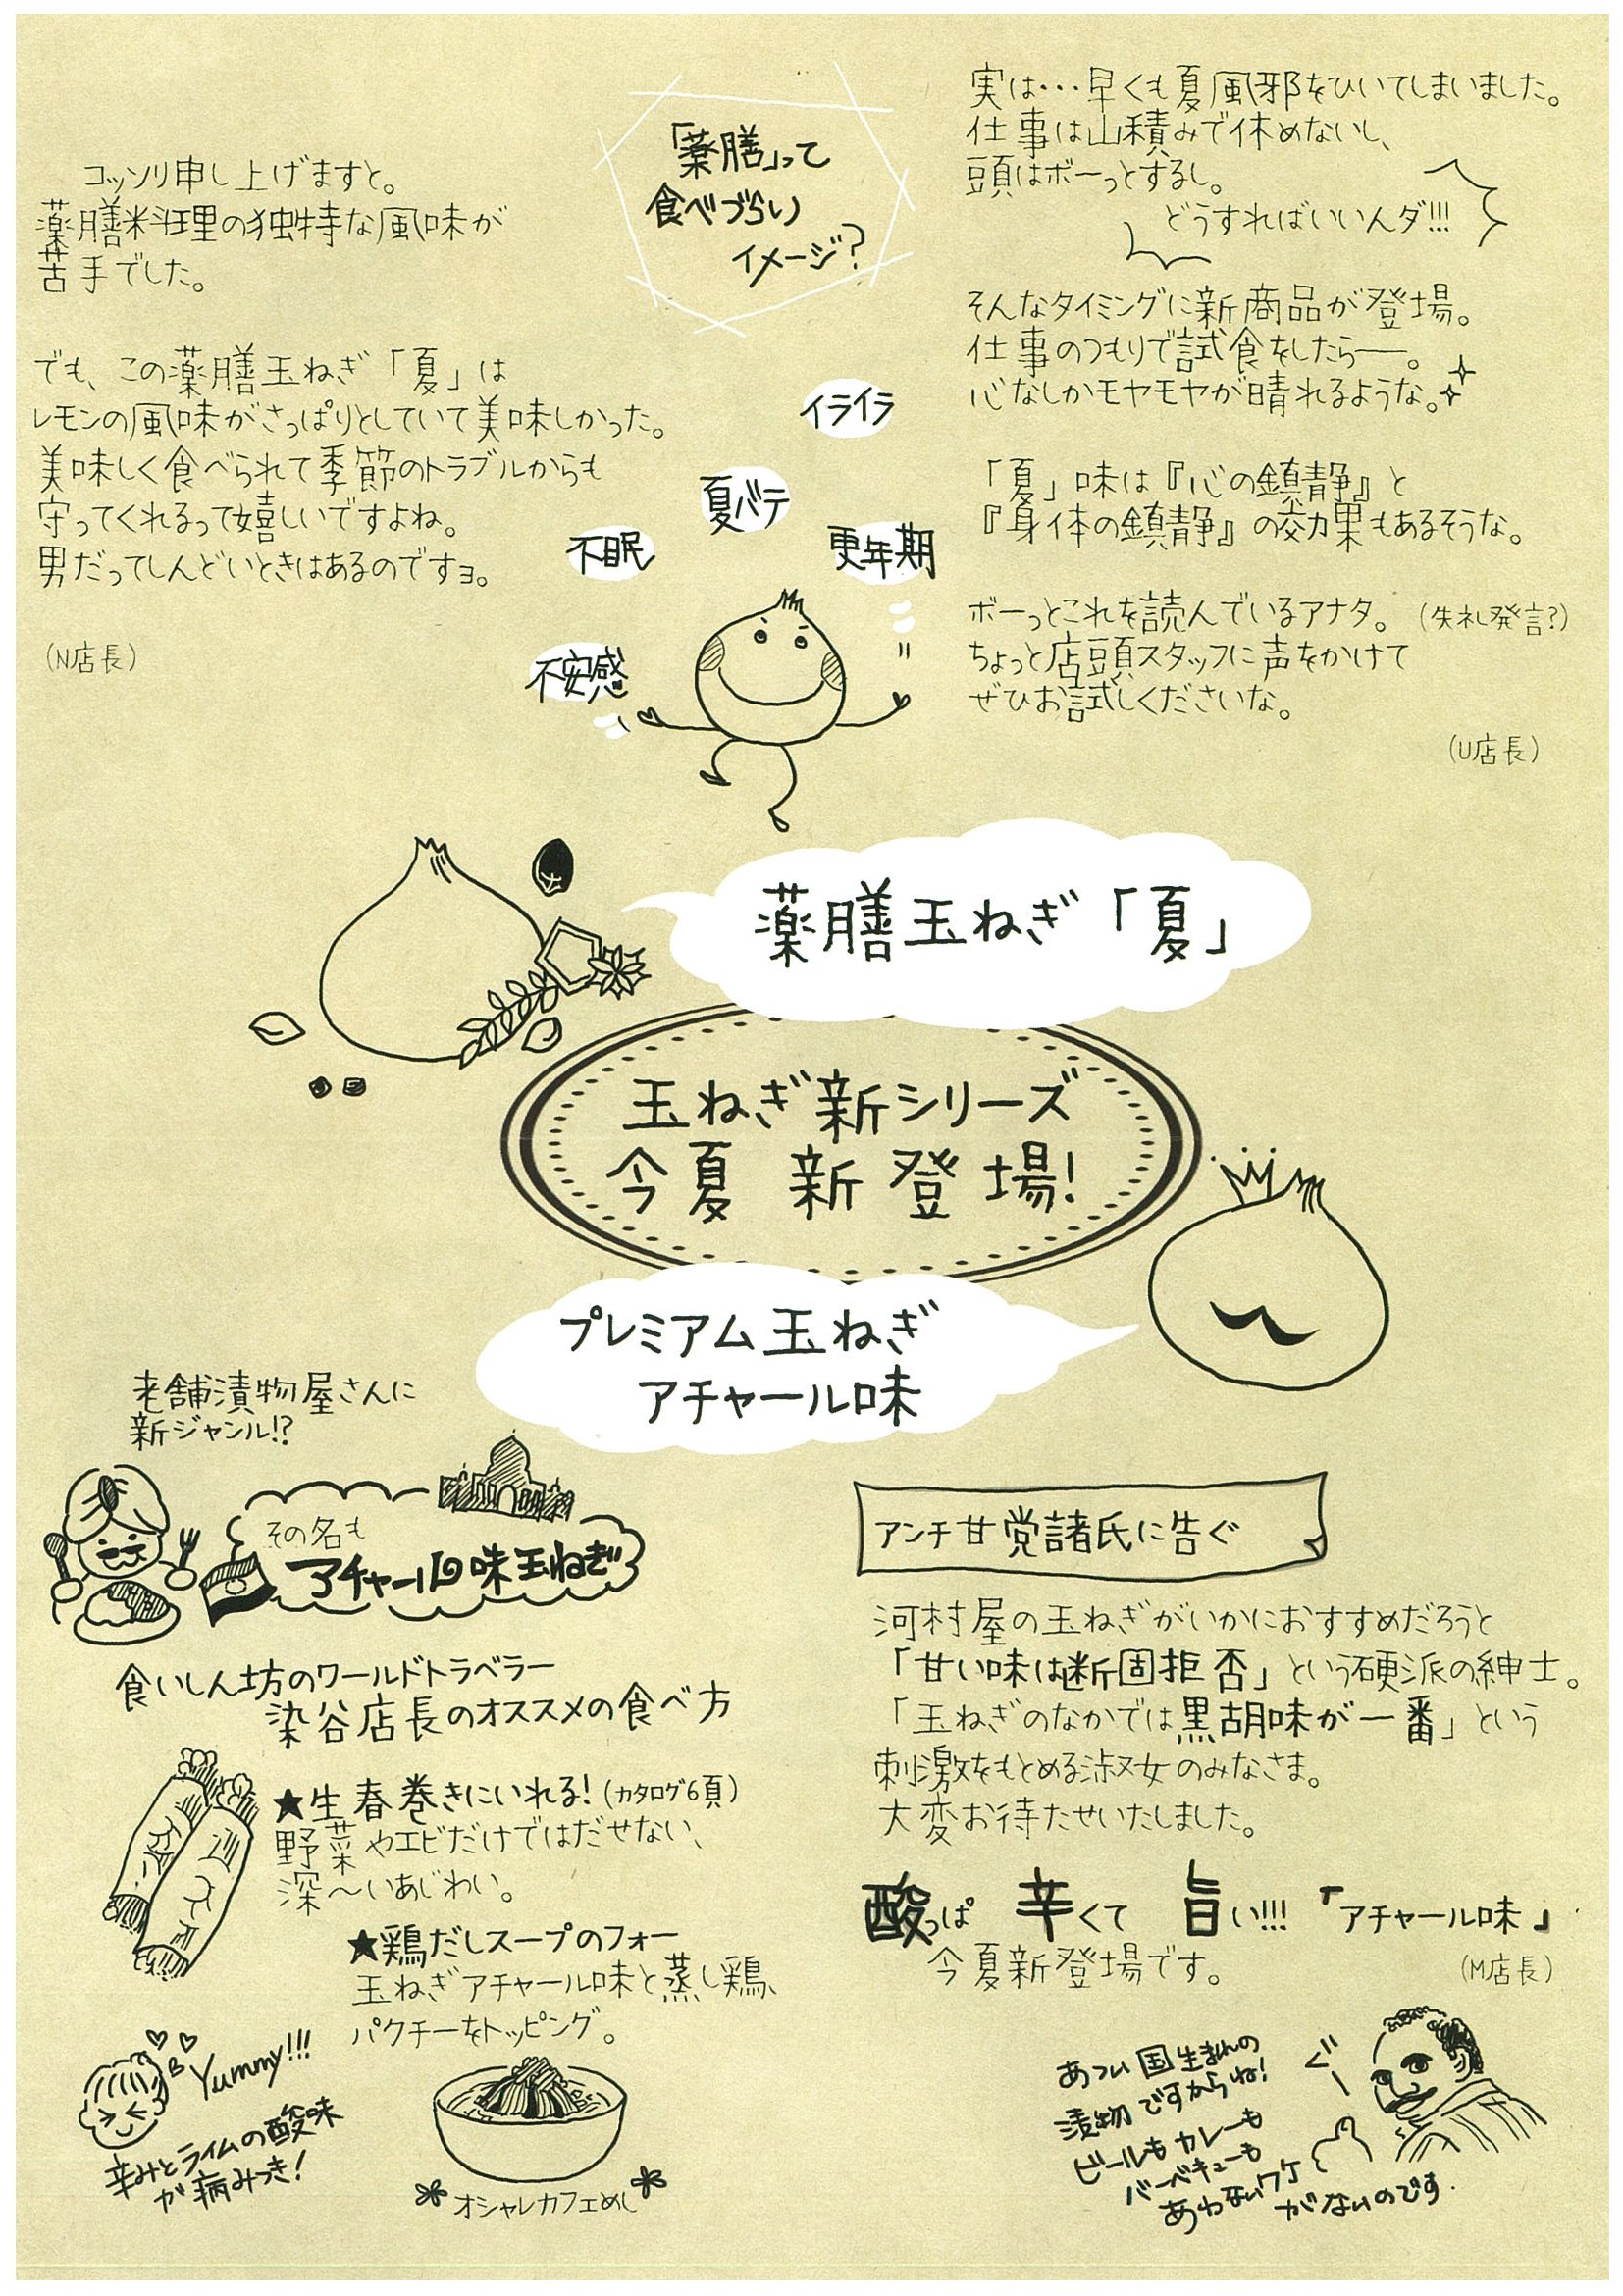 「薬膳」って
食べづらい
イメージ?
コッソリ申し上げますと。
薬膳料理の独特な風味が
苦手でした。
でも、この薬膳玉ねぎ「夏」は
レモンの風味がさっぱりとしていて美味しかった。
美味しく食べられて季節のトラブルからも
守ってくれるって嬉しいですよね。
男だってしんどいときはあるのですョ。
(N店長)
実は・・・早くも夏風邪をひいてしまいました。
仕事は山積みで休めないし、
頭はボーっとするし。
どうすればいいんダ!!!
そんなタイミングに新商品が登場。
仕事のつもりで試食をしたら――。
心なしかモヤモヤが晴れるような。
「夏」味は『心の鎮静』と
『身体の鎮静』の効果もあるそうな。
ボーっとこれを読んでいるアナタ。(失礼発言?)
ちょっと店頭スタッフに声をかけて
ぜひお試しくださいな。
(U店長)
イライラ
夏バテ
不眠
更年期
不安感
薬膳玉ねぎ「夏」
玉ねぎ新シリーズ
今夏 新登場!
プレミアム玉ねぎ
アチャール味
老舗漬物屋さんに
新ジャンル!?
その名も
アチャール味玉ねぎ
食いしん坊のワールドトラベラー
染谷店長のオススメの食べ方
★生春巻きにいれる!(カタログ6頁)
野菜やエビだけではだせない、
深〜いあじわい。
★鶏だしスープのフォー
玉ねぎアチャール味と蒸し鶏、
パクチーをトッピング。
Yummy!!!
辛みとライムの酸味
が病みつき!
オシャレカフェめし
アンチ甘党諸氏に告ぐ
河村屋の玉ねぎがいかにおすすめだろうと
「甘い味は断固拒否」という硬派の紳士。
「玉ねぎのなかでは黒胡味が一番」という
刺激をもとめる淑女のみなさま。
大変お待たせいたしました。
酸っぱ 辛くて 旨い!!!「アチャール味」
今夏新登場です。
(M店長)
ぐー
あつい国生まれの
漬物ですからね!
ビールもカレーも
バーベキューも
あわないワケ
がないのです.